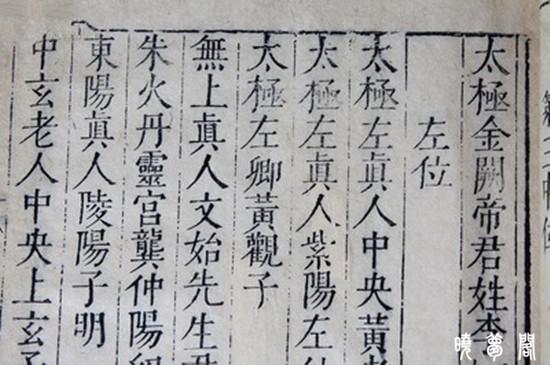 太極金闕帝君姓李
左位
太極左真人中央黃老
太極左真人紫陽左仙
太極左卿黃觀子
無上真人文始先生尹
朱火丹靈宮龔仲陽
東陽真人陵陽子明
中玄老人中央上玄子
曉夢閣